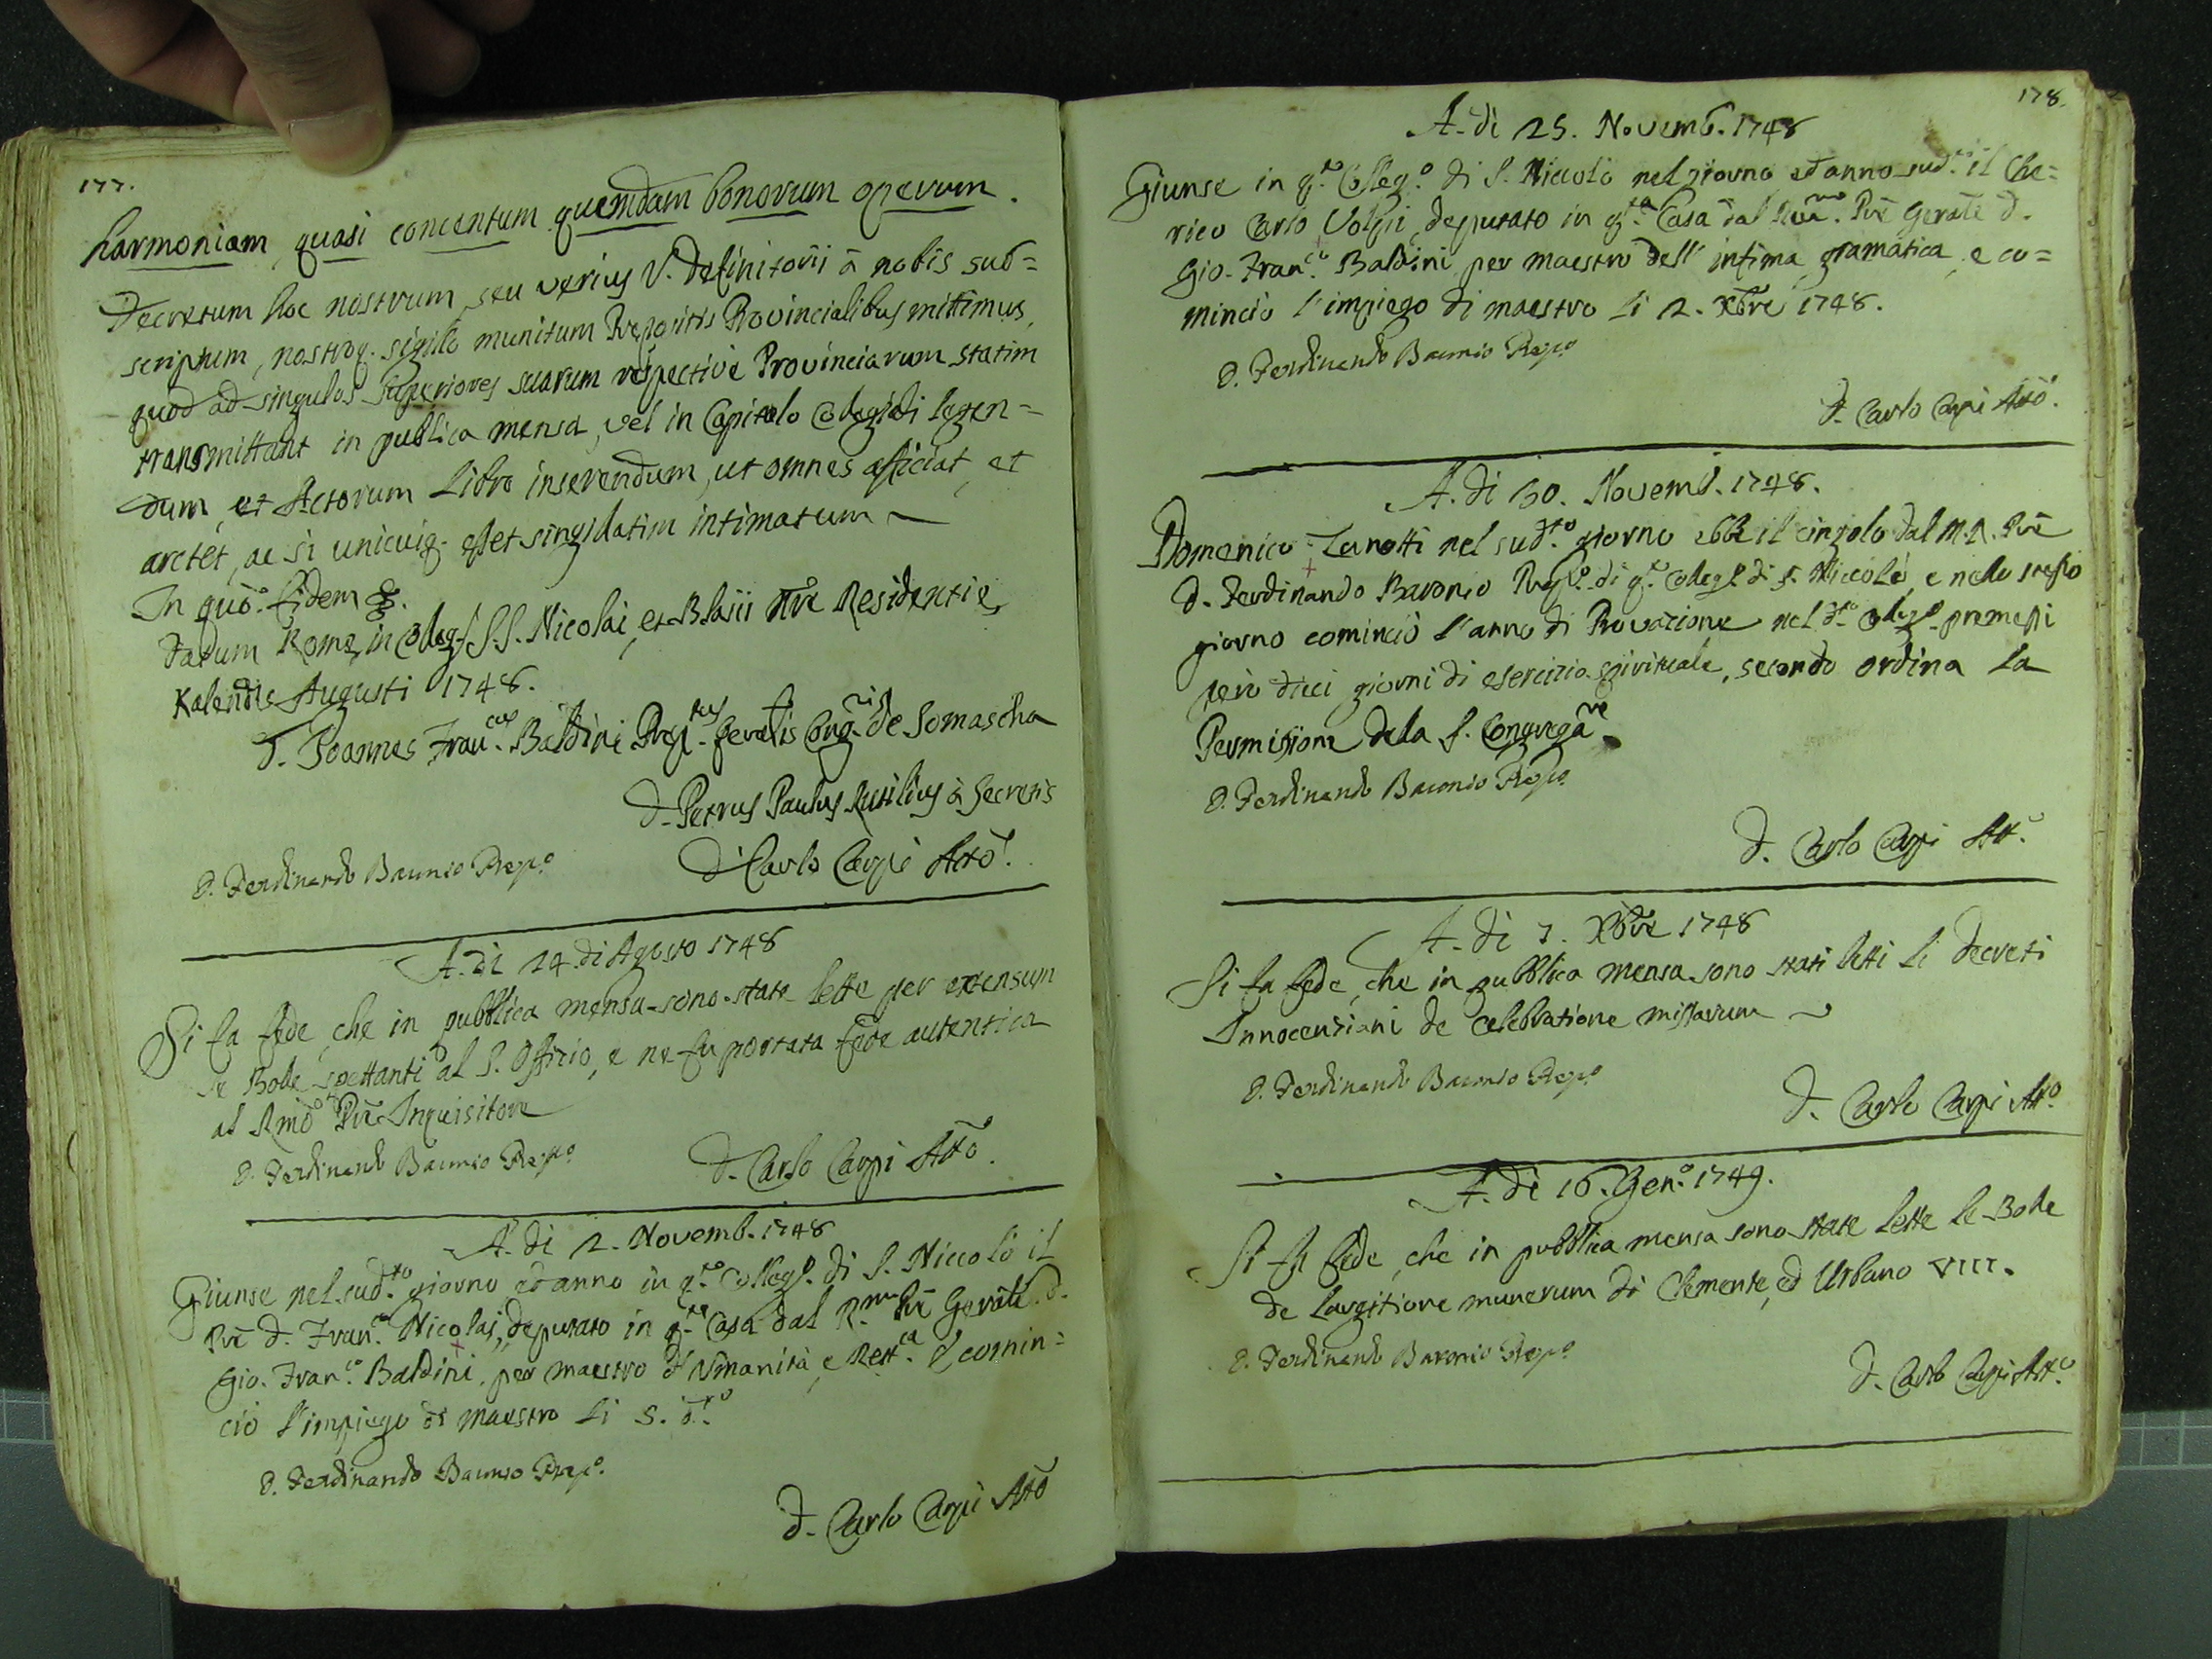 177.
harmoniam quasi concentum quemdam bonorum operum.
Decretum hoc nostrum, seu verius V. Definitorii à nobis sub=
scriptum, nostroq. sigillo munitum Prepositis Provincialibus mittimus,
quod ad singulos superiores suarum respective Provinciarum statim
transmittant in publica mensa, vel in Capitolo Colegiali legen=
dum, et Actorum Libro inserendum, ut omnes afficiat, et
arctet, ac si unicuiq. esset singulatim intimatum
In quo.. fidem &.
Datum Rome in Coleg. S.S. Nicolai, et Blasii nr̃e Residentie
Kalendis Augusti 1748.
D. Joannes Fran.cus Baldini Prep.tus Gen̄alis Cong.nis de Somascha
D. Petrus Paulus Rutilius à Secretis
D. Ferdinando Baronio Prep.o
D. Carlo Carpi Atto.
A. di 24. di Agosto 1748
Si fa fede, che in pubblica mensa sono state lette per extensum
le Bolle spettanti al S. Offizio, e ne fu portata fede autentica
al Rm̃o Pr̃e Inquisitore
D. Ferdinando Baronio Prep.o
D. Carlo Carpi Atto.
A. di 2. Novemb. 1748
Giunse nel sud.to giorno ed anno in q.to Colleg.o di S. Niccolò il
Pr̃e D. Fran.co Nicolai, deputato in q.ta Casa dal R.mo Pr̃e Gen̄ale D.
Gio. Fran.co Baldini, per maestro d' Umanità, e Rett.ca e comin=
ciò l'impiego di maestro li 5. d.to
D. Ferdinando Baronio Prep.o
D. Carlo Carpi Atto
178.
A. di 25. Novemb. 1748
Giunse in q.to Colleg.o di S. Niccolò nel giorno ed anno sud.o il Che=
rico Carlo Volpi, deputato in q.ta Casa dal Rev.mo Pr̃e Gen̄ale D.
Gio. Fran.co Baldini per maestro dell' infima gramatica, e co=
minciò l'impiego di maestro li 2. Xbre 1748.
D. Ferdinando Baronio Prep.o
D. Carlo Carpi Atto.
A. di 30. Novemb. 1748.
Domenico Zanotti nel sud.to giorno ebbe il cingolo dal M. R. Pr̃e
D. Ferdinando Baronio Prep.o di q.to Coleg.o di S. Niccolò, e nello stesso
giorno cominciò l'anno di Provazione nel d.to Coleg.o premessi
però dieci giorni di esercizio spirituale, secondo ordina la
Permissione dela S. Congrega.ne
D. Ferdinando Baronio Prep.o
D. Carlo Carpi Att.o
A. di 7. Xbre 1748
Si fa fede, che in pubblica mensa sono stati letti li Decreti
Innocenziani de celebratione missarum
D. Ferdinando Baronio Prep.o
D. Carlo Carpi Att.o
A. di 16. Gen.o 1749.
Si fa fede, che in pubblica mensa sono state lette le Bolle
de largitione munerum di Clemente, ed Urbano VIII.
D. Ferdinando Baronio Prep.o
D. Carlo Carpi Att.o